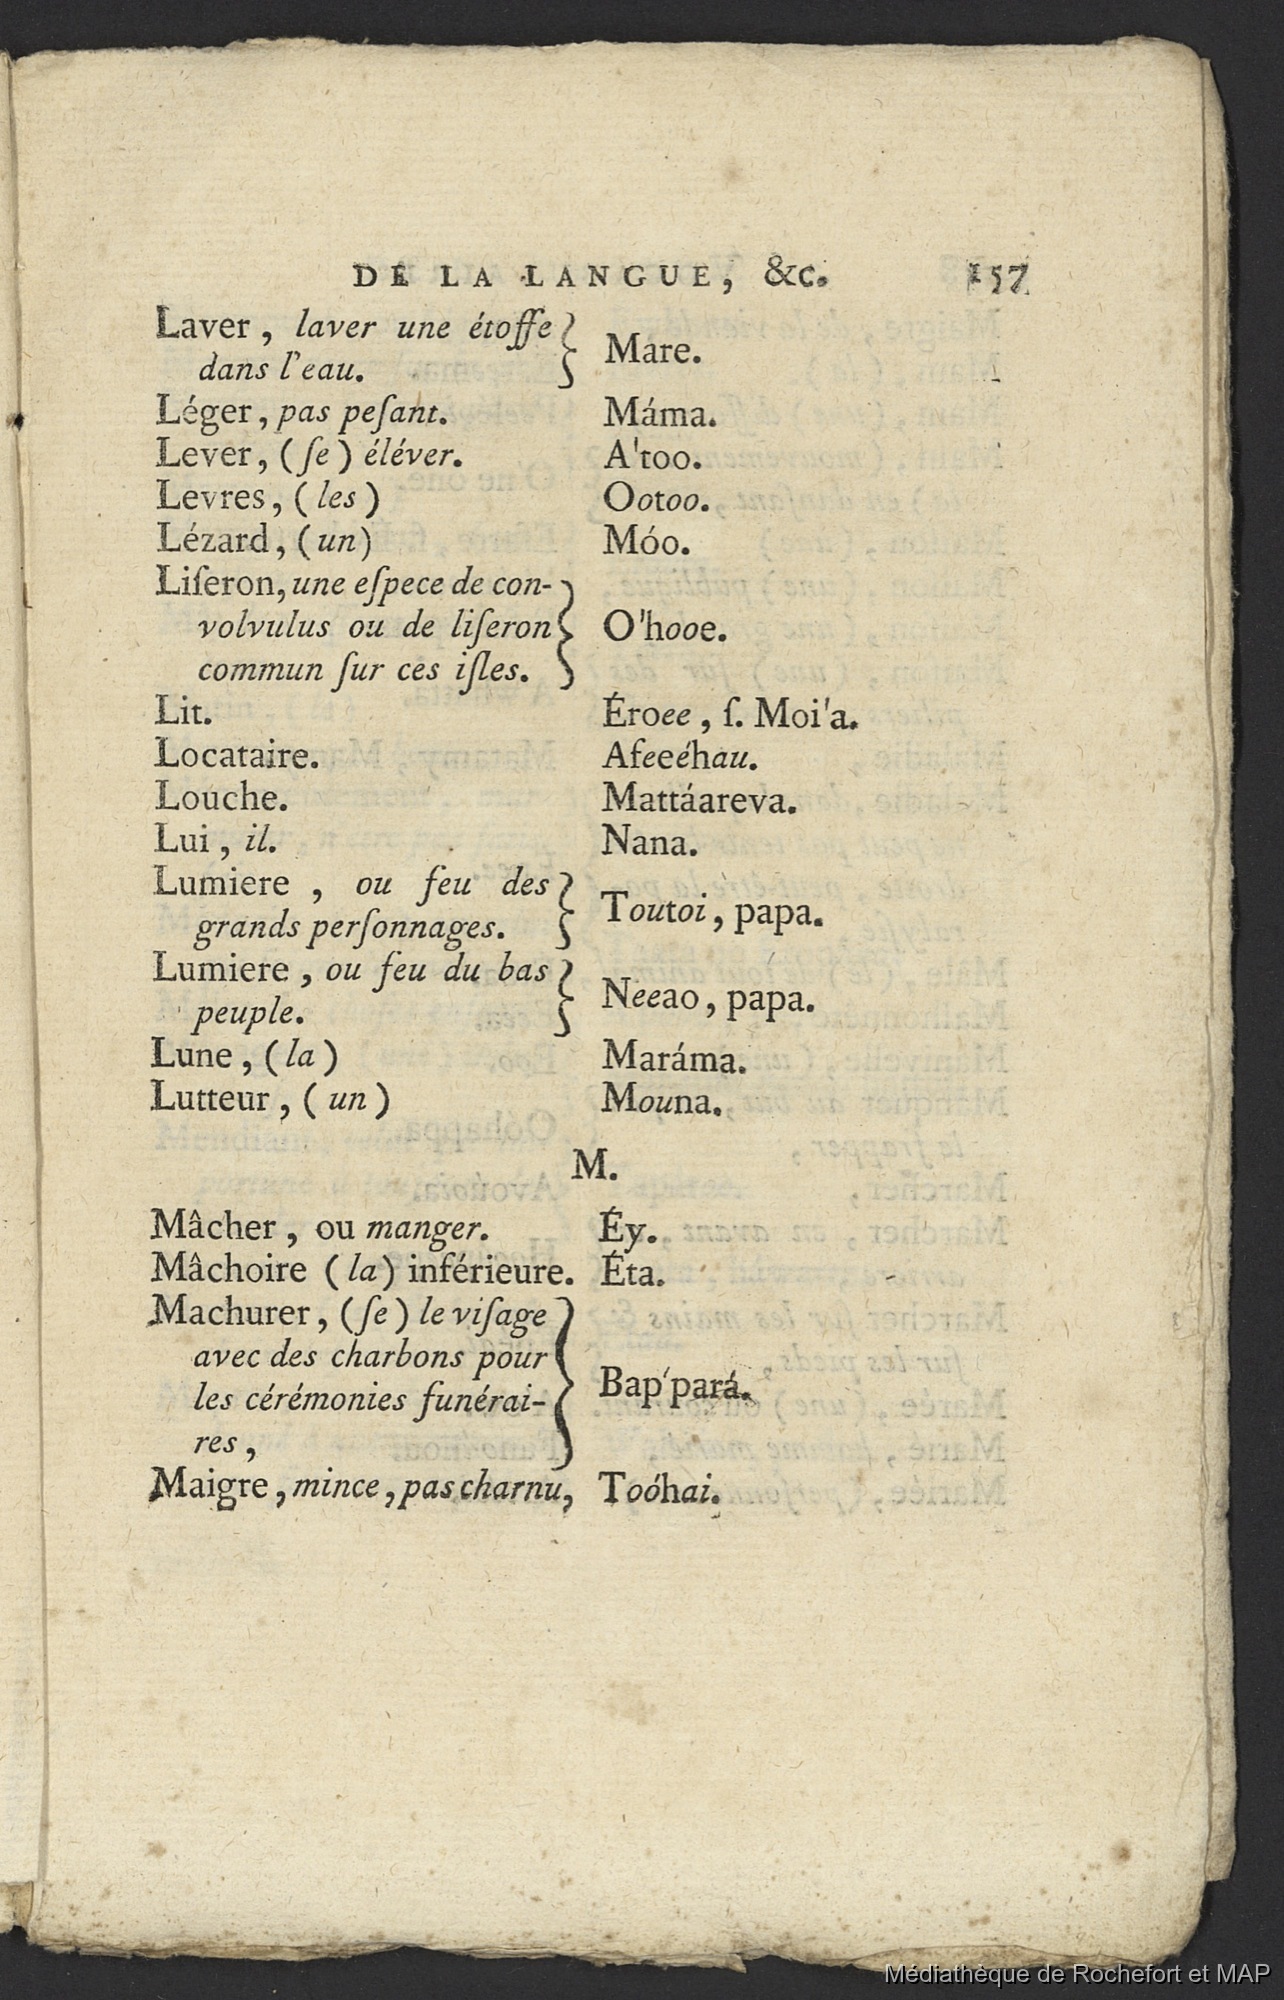 DE LA LANGUE, &c. 157
Laver, laver une étoffe dans l'eau. } Mare.
Léger, pas peſant. Máma.
Lever, (ſe) éléver. A'too.
Levres, (les) Ootoo.
Lézard, (un) Móo.
Liſeron, une eſpece de con-
volvulus ou de liſeron } O'hooe.
commun ſur ces iſles.
Lit. Éroee, ſ. Moi'a.
Locataire. Afeeéhau.
Louche. Mattáareva.
Lui, il. Nana.
Lumiere, ou feu des
grands perſonnages. } Toutoi, papa.
Lumiere, ou feu du bas
peuple. } Neeao, papa.
Lune, (la) Maráma.
Lutteur, (un) Mouna.
M.
Mâcher, ou manger. Éy.
Mâchoire (la) inférieure. Éta.
Machurer, (ſe) le viſage
avec des charbons pour
les cérémonies funérai- } Bap'pará.
res,
Maigre, mince, pas charnu, Toóhai.
Médiathèque de Rochefort et MAP